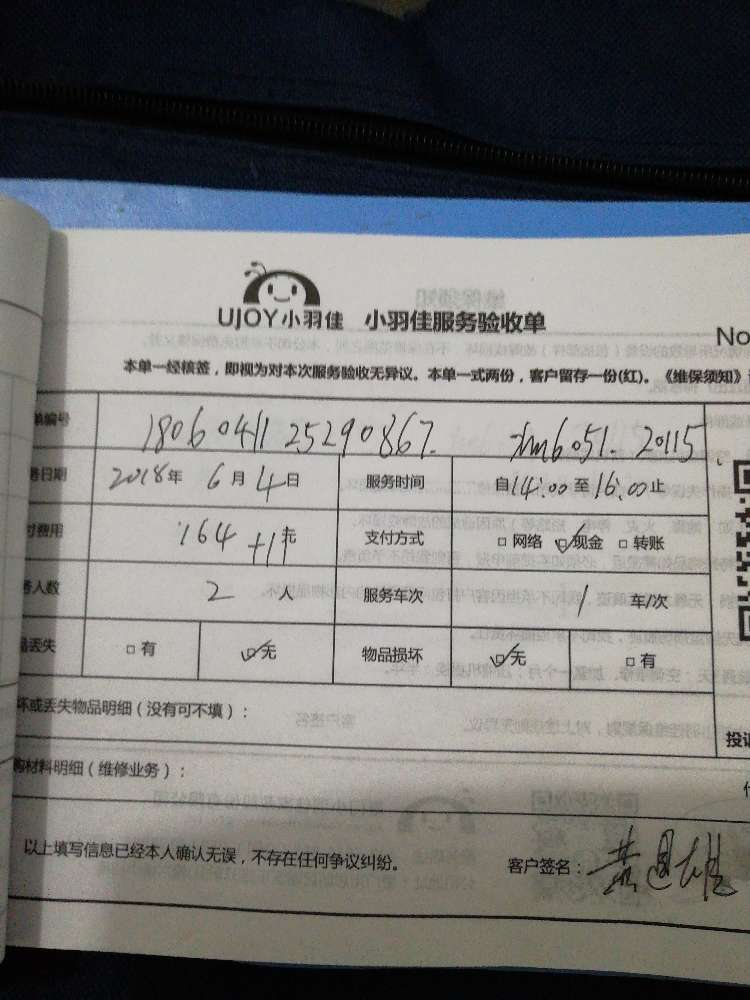 UJOY小羽佳 小羽佳服务验收单
No
本单一经核签，即视为对本次服务验收无异议。本单一式两份，客户留存一份(红)。《维保须知》
单编号 1806041125290867. xm6051. 20115.
务日期 2018年 6月4日 服务时间 自14:00至16:00止
付费用 164+11元 支付方式 □网络 ☑现金 □转账
务人数 2人 服务车次 1 车/次
品丢失 □有 ☑无 物品损坏 ☑无 □有
坏或丢失物品明细(没有可不填)：
投诉
购材料明细(维修业务)：
以上填写信息已经本人确认无误，不存在任何争议纠纷。 客户签名：